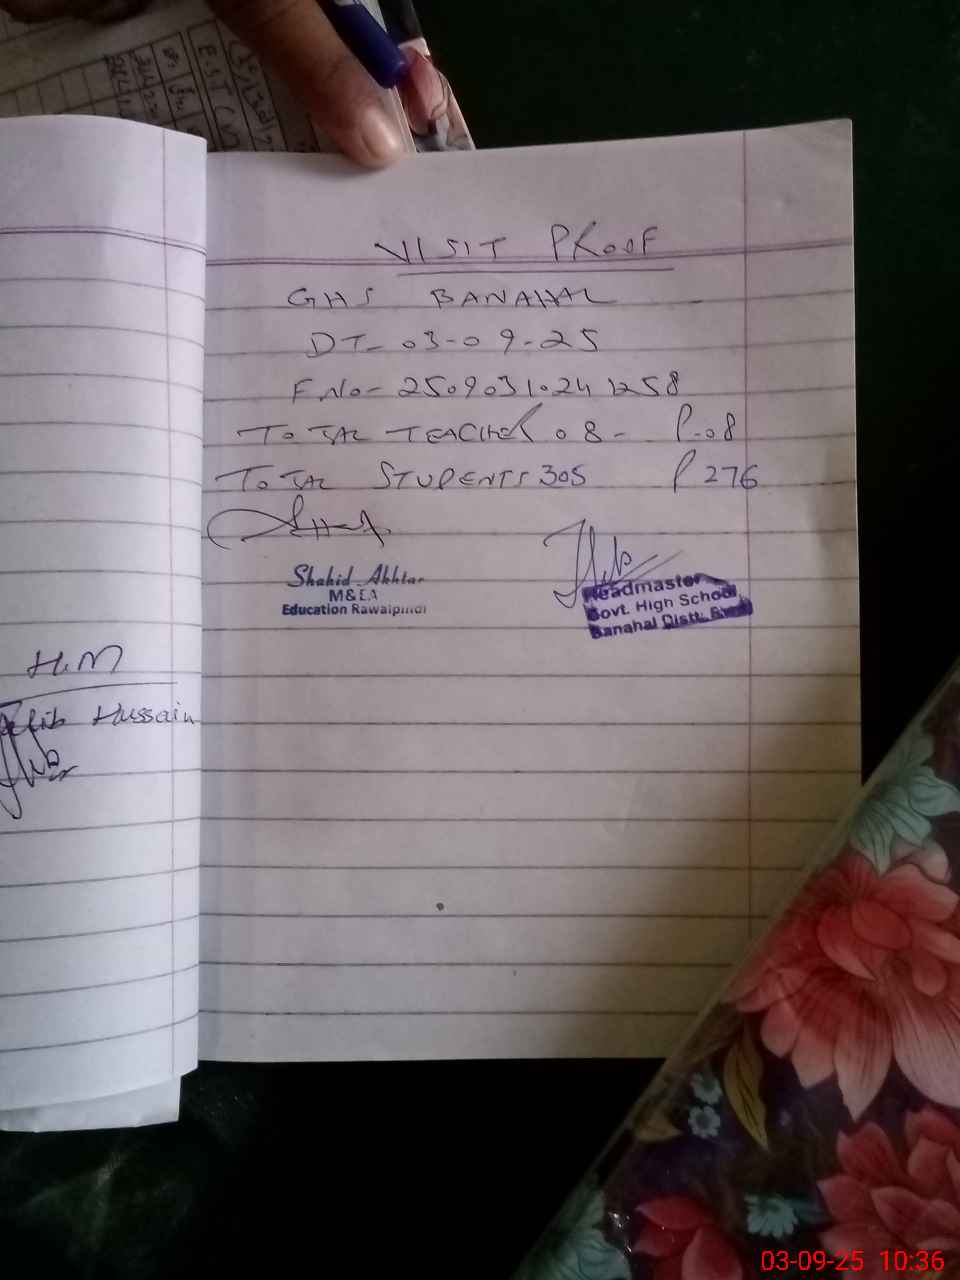 VISIT PROOF
GHS BANAHAL
DT- 03-09-25
F.No- 2509031024 1258
TOTAL TEACHER 08- P-08
TOTAL STUDENTS 305 P 276
Shahid Akhtar
M&EA
Education Rawalpindi
Headmaster
Govt. High School
Banahal Distt:
H.M
Hussain
03-09-25 10:36